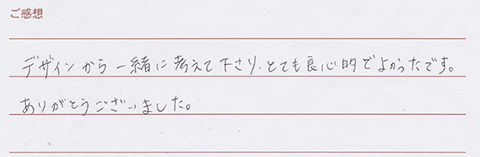 ご感想
デザインから一緒に考えて下さり、とても良心的でよかったです。
ありがとうございました。